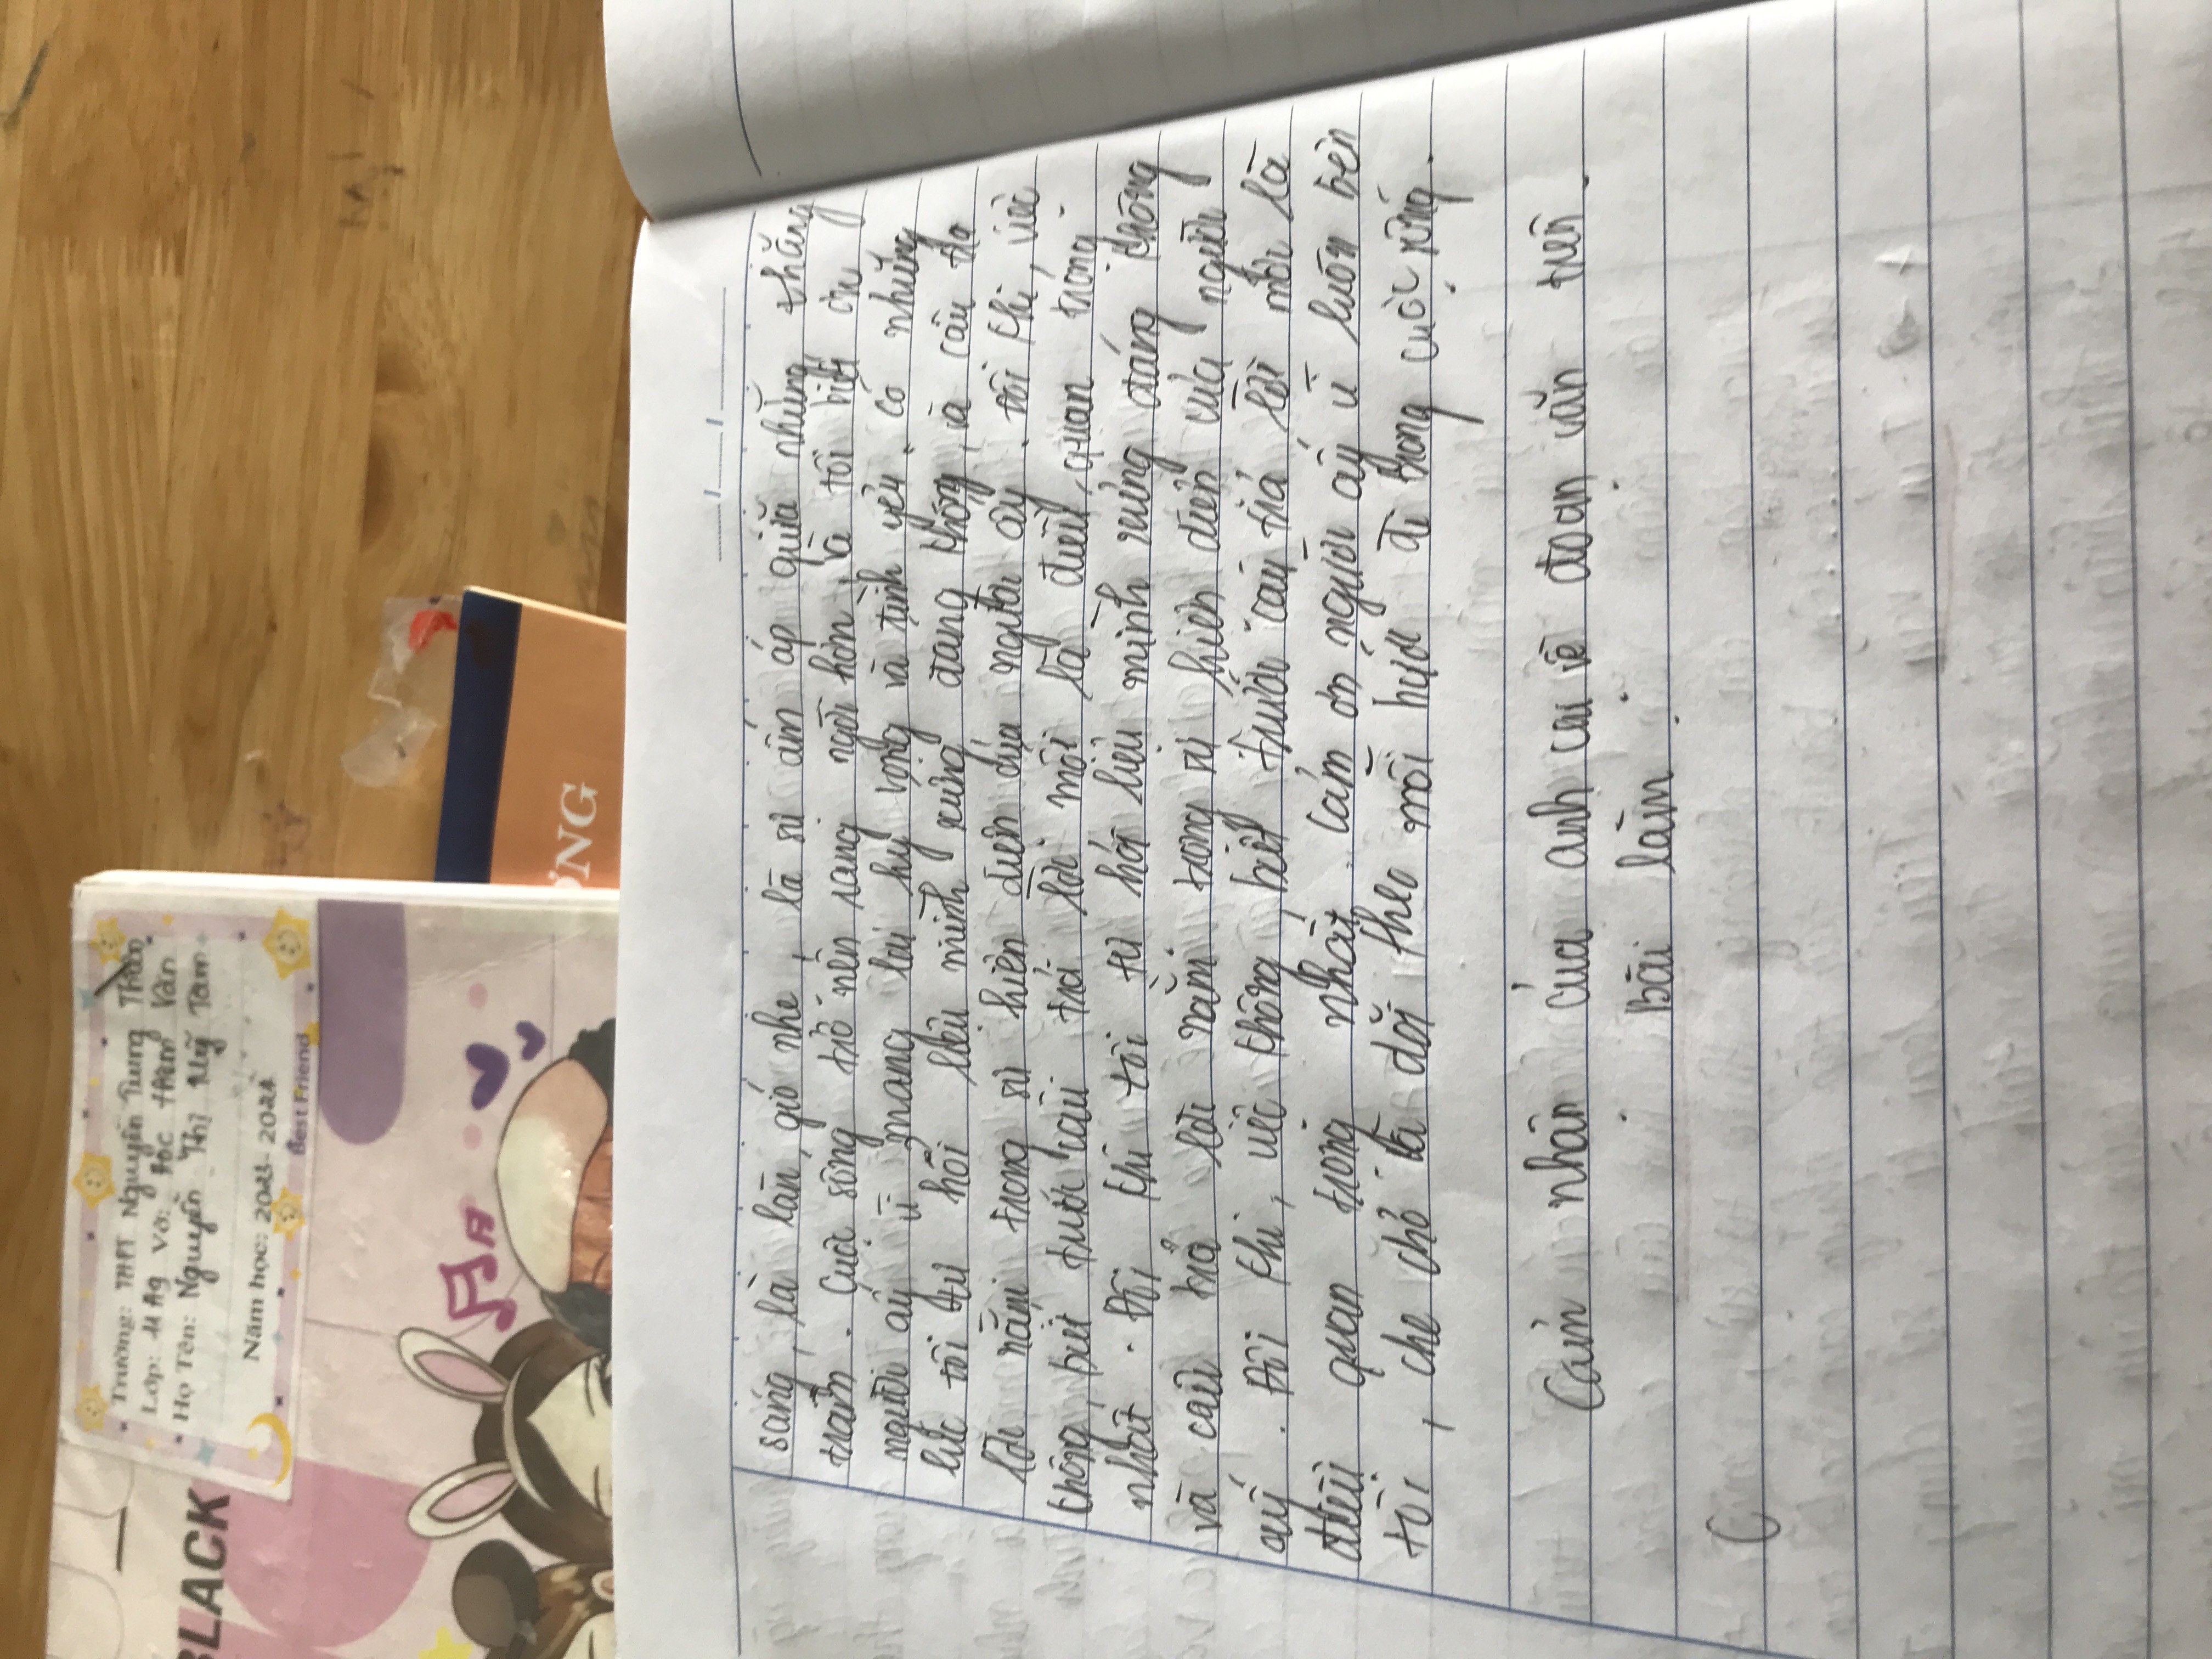 Trường: THPT Nguyễn Trung Thiên
Lớp: 11A9 Vở: Đọc thêm Văn
Họ Tên: Nguyễn Thị Mỹ Tâm
Năm học: 2023-2024
Best Friend
BLACK
ƠNG
sáng, là làn gió nhẹ, là sự ấm áp giữa những tháng
trầm. Cuộc sống trở nên sang ngời hơn, là tôi biết ơn
người ấy vì mang lại hy vọng và tình yêu. Có những
lúc tôi tự hỏi liệu mình xứng đáng không, và câu trả
lời nằm trong sự hiện diện của người ấy. Đôi khi, việc
không biết trước câu trả lời mới là điều quan trọng
nhất. Đôi khi tôi tự hỏi liệu mình xứng đáng không
và câu trả lời nằm trong sự hiện diện của người
ấy. Đôi khi, việc không biết trước câu trả lời mới là
điều quan trọng nhất. Cảm ơn người ấy vì luôn bên
tôi, che chở và dõi theo mỗi bước đi trong cuộc sống.
Cảm nhận của anh chị về đoạn văn trên.
Bài làm